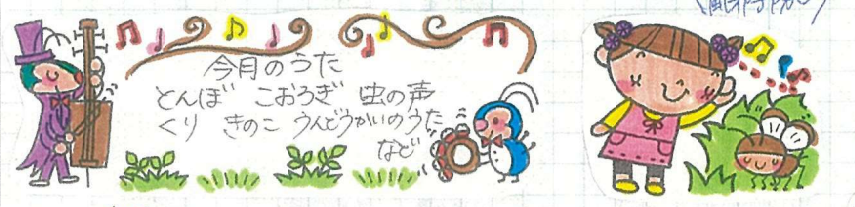 今月のうた
とんぼ こおろぎ 虫の声
くり きのこ うんどうかいのうた
など